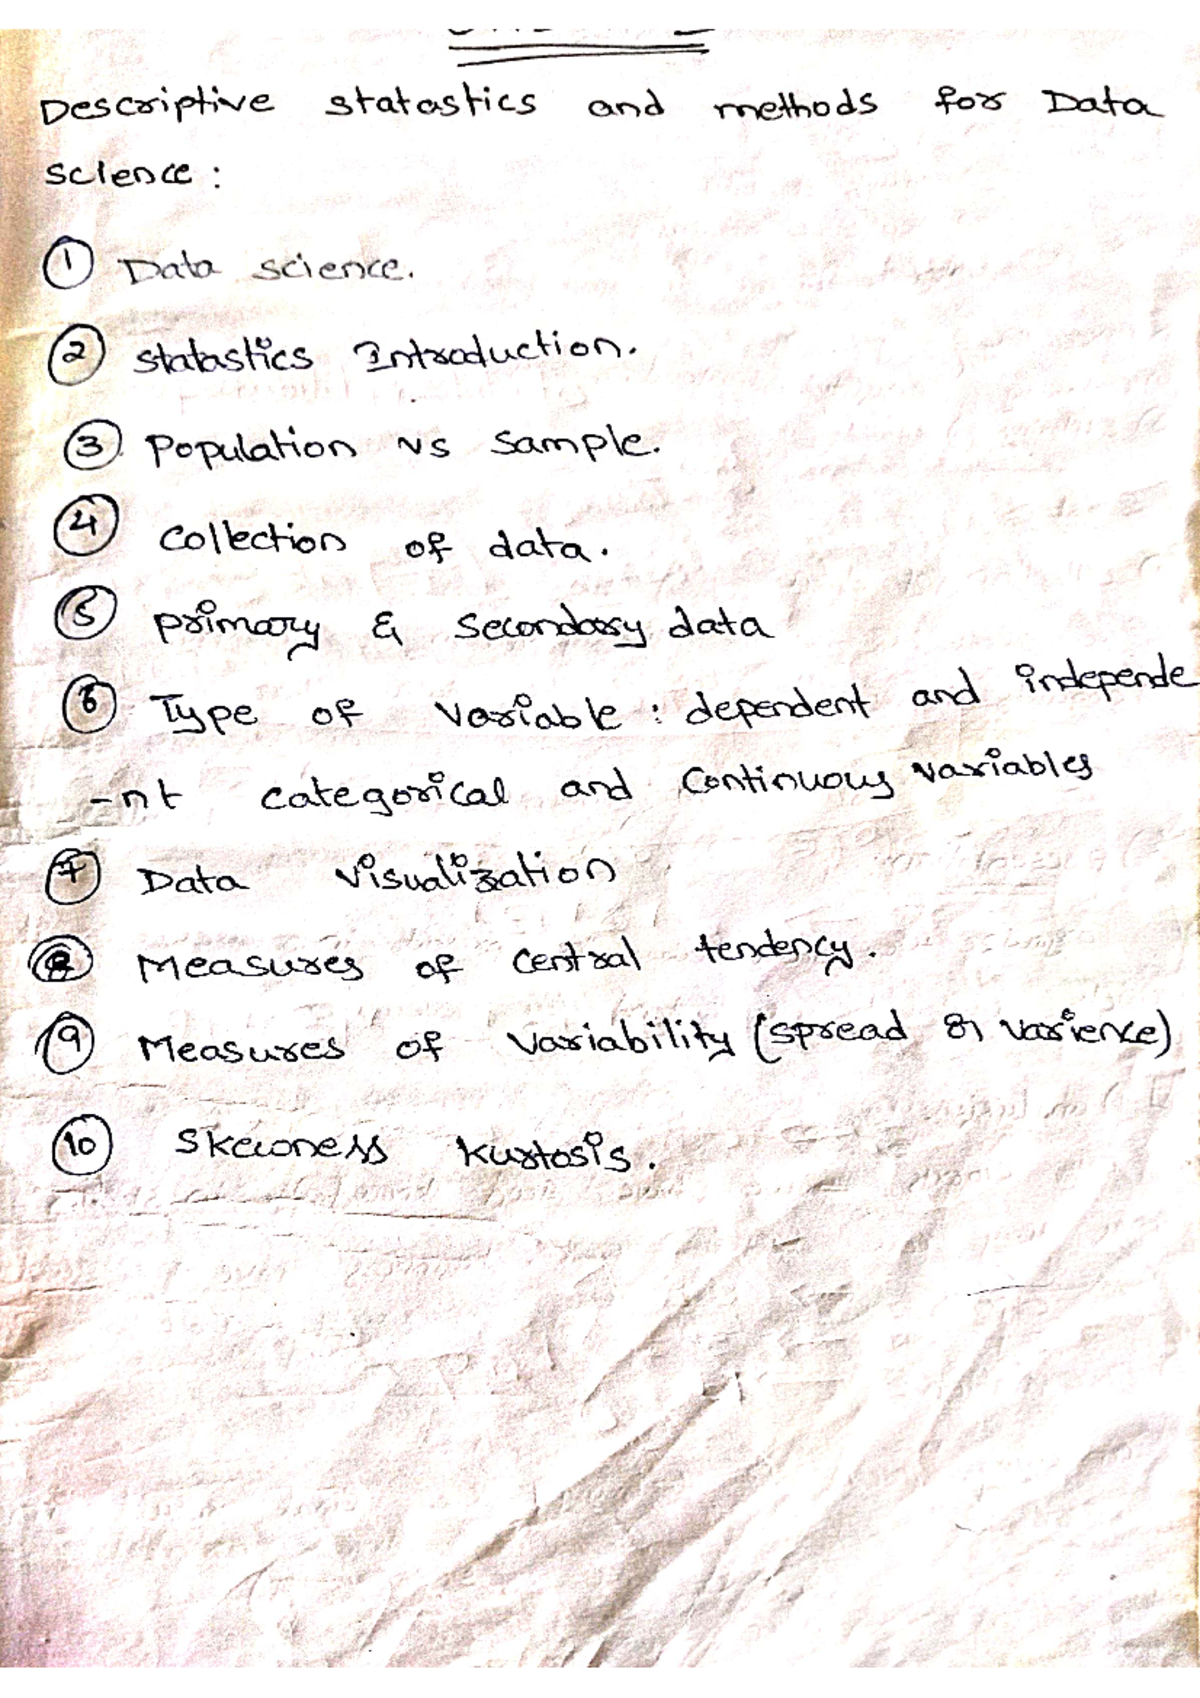 Descriptive statastics and methods for Data
science :
① Data science.
② statastics Introduction.
③ Population vs Sample.
④ Collection of data.
⑤ primary & Secondary data
⑥ Type of Variable : dependent and independe
-nt categorical and Continuous variables
⑦ Data visualization
⑧ Measures of Central tendency.
⑨ Measures of Variability (spread or varience)
⑩ Skewness kurtosis.